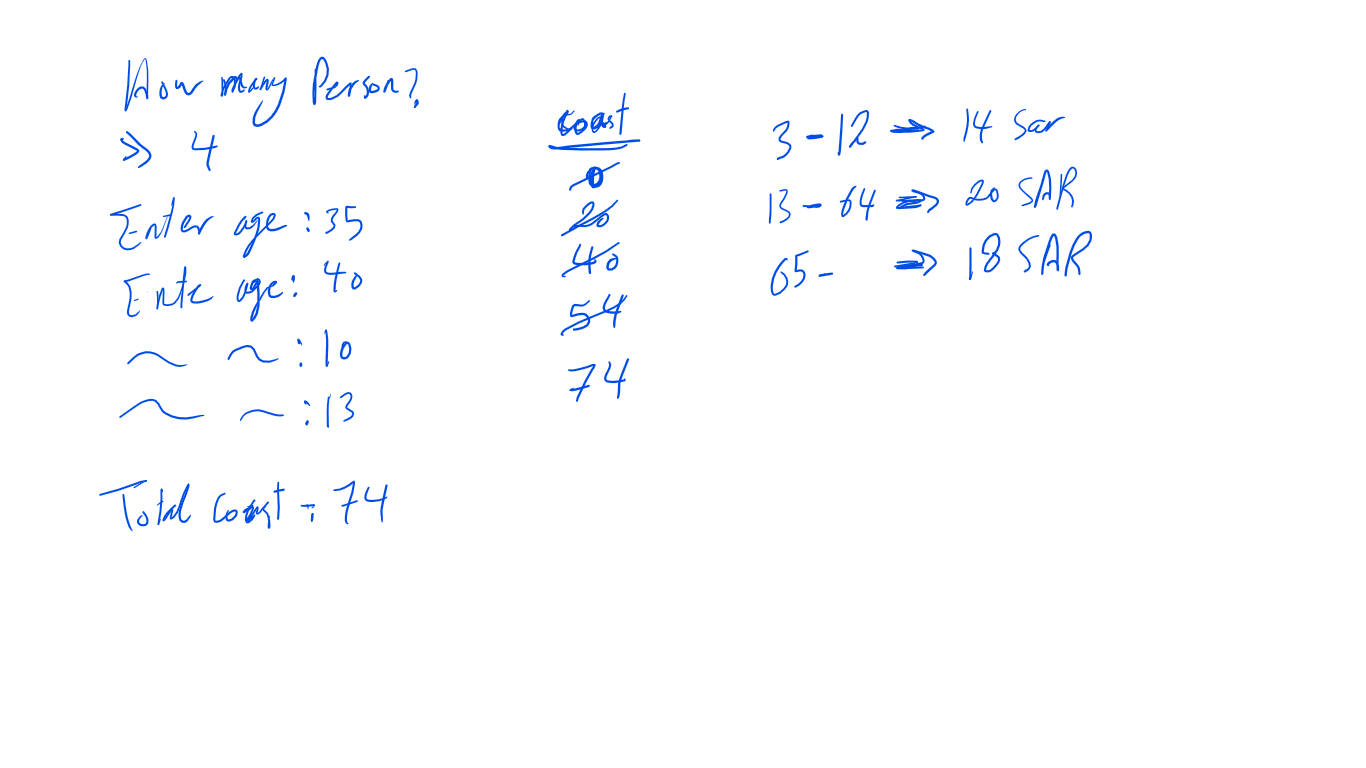 How many Person?
>> 4
Enter age : 35
Ente age : 40
~ ~ : 10
~ ~ : 13
Total coast = 74
coast
0
20
40
54
74
3 - 12 => 14 Sar
13 - 64 => 20 SAR
65 - => 18 SAR